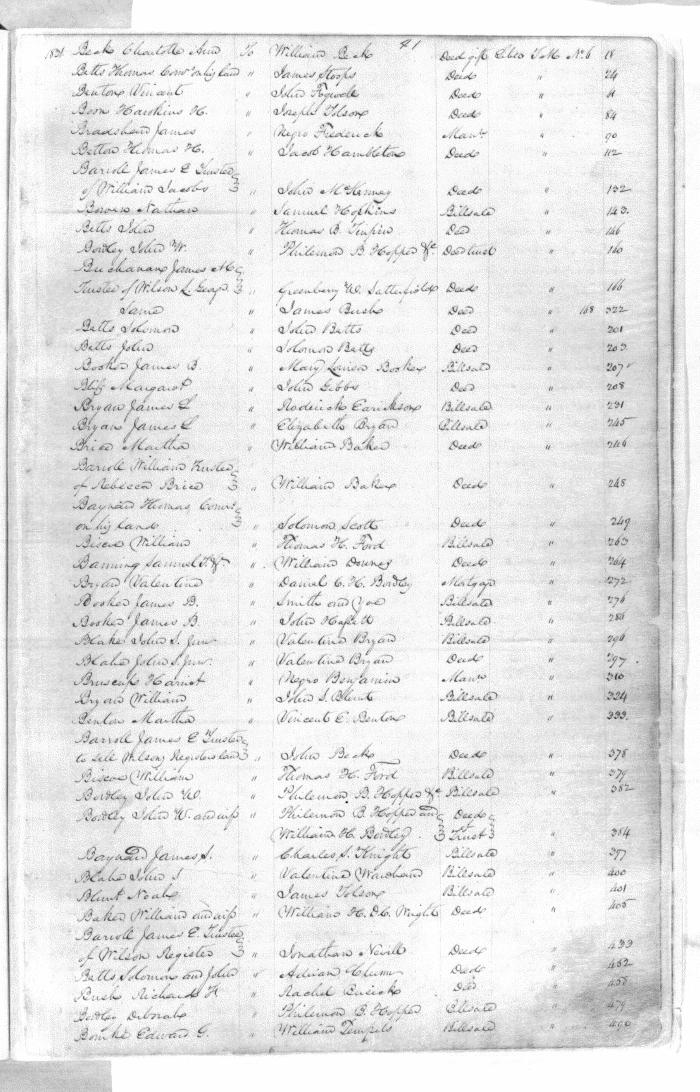 41
1831 Beck Charlotte Ann To William Beck Deed gift Liber T M No. 6 18
Betts Thomas Const on his land " James Stoops Deed " 24
Benton Vincent " John Deed "
Boon Hawkins H. " Joseph Folson Deed " 84
Bradshaw James " Negro Frederick Manu " 90
Betton Thomas H. " Jacob Hambleton Deed " 112
Barroll James E Trustee
of William Jacobs " John McKenney Deed " 132
Bowen Nathan " Samuel Hopkins Billsale " 143.
Betts John " Thomas B. Turpin Deed " 146
Bordley John W. " Philemon B. Hopper &c Deed trust " 160
Buchanan James M
Trustee of Wilson L. " Greenberry W. Satterfield Deed " 166
Same " James Bush Deed " 168 322
Betts Solomon " John Betts Deed " 201
Betts John " Solomon Betts Deed " 203.
Booker James B. " Mary Louisa Booker Billsale " 207
Margaret " John Gibbs Deed " 208
Bryan James L " Roderick Billsale " 231
Bryan James L " Elizabeth Bryan Billsale " 245
Brice Martha " William Baker Deed " 246
Barroll William Trustee
of Rebecca Brice " William Baker Deed " 248
Baynard Thomas Const
on his land " Solomon Scott Deed " 249
Biscoe William " Thomas H. Ford Billsale " 263
Banning Samuel T. &c " William Downes Deed " 264
Bryan Valentine " Daniel C. H. Bordley Mortgage " 272
Booker James B. " Smith and Billsale " 276
Booker James B. " John Billsale "
Blake John S. Junr " Valentine Bryan Billsale " 296
Blake John S. Junr. " Valentine Bryan Deed " 297.
Harriet " Negro Benjamin Manu " 310
Bryan William " John S. Blunt Billsale " 324
Benton Martha " Vincent E. Benton Billsale " 333.
Barroll James E Trustee
to sell Wilson Registers land " John Beck Deed " 378
Biscoe William " Thomas H. Ford Billsale " 379
Bordley John W. " Philemon B. Hopper &c Billsale " 382
Bordley John W. and wife " Philemon B. Hopper and Deed
William H. Bordley Trust " 384
Baynard James S. " Charles S. Knight Billsale " 397
Blake John S " Valentine Billsale " 400
Blunt Noah " James Folson Billsale " 401
Baker William and wife " William H. DC. Wright Deed " 405
Barroll James E. Trustee
of Wilson Register " Jonathan Nevill Deed " 433
Betts Solomon and John " Adrian Deed " 452
Bush Richard H " Rachel Cusick Deed "
Bordley Deborah " Philemon B. Hopper Billsale " 479
Bourke Edward G. " William Temple Billsale " 490